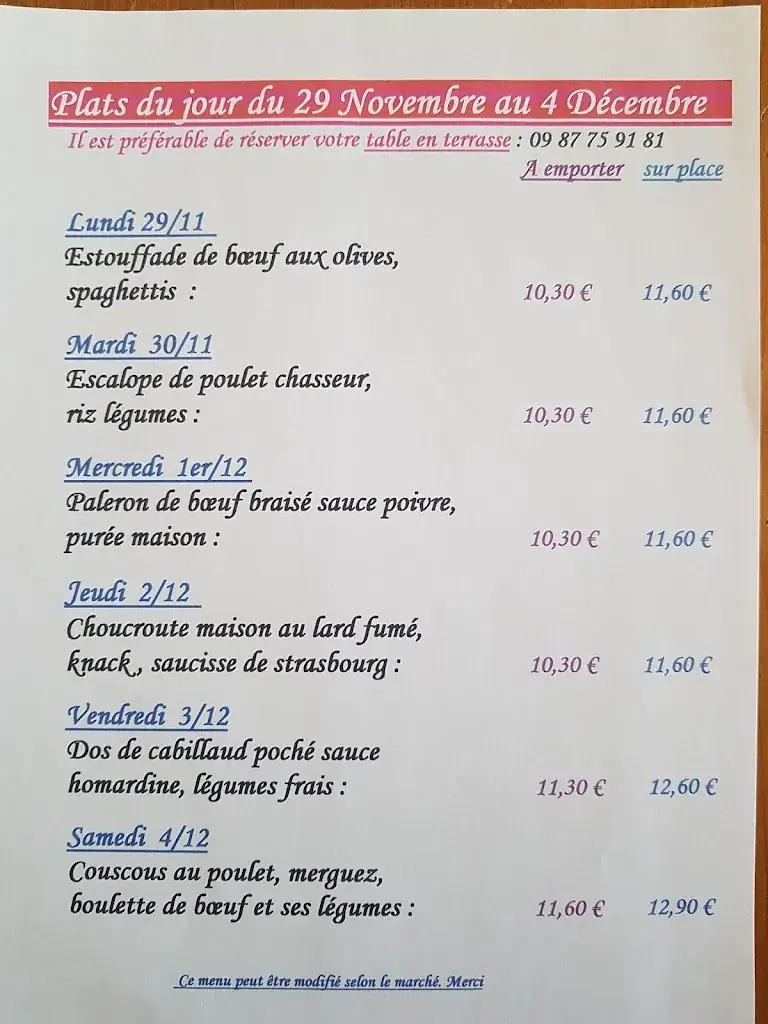 Plats du jour du 29 Novembre au 4 Décembre
Il est préférable de réserver votre table en terrasse : 09 87 75 91 81
A emporter sur place
Lundi 29/11
Estouffade de bœuf aux olives,
spaghettis : 10,30 € 11,60 €
Mardi 30/11
Escalope de poulet chasseur,
riz légumes : 10,30 € 11,60 €
Mercredi 1er/12
Paleron de bœuf braisé sauce poivre,
purée maison : 10,30 € 11,60 €
Jeudi 2/12
Choucroute maison au lard fumé,
knack, saucisse de strasbourg : 10,30 € 11,60 €
Vendredi 3/12
Dos de cabillaud poché sauce
homardine, légumes frais : 11,30 € 12,60 €
Samedi 4/12
Couscous au poulet, merguez,
boulette de bœuf et ses légumes : 11,60 € 12,90 €
Ce menu peut être modifié selon le marché. Merci